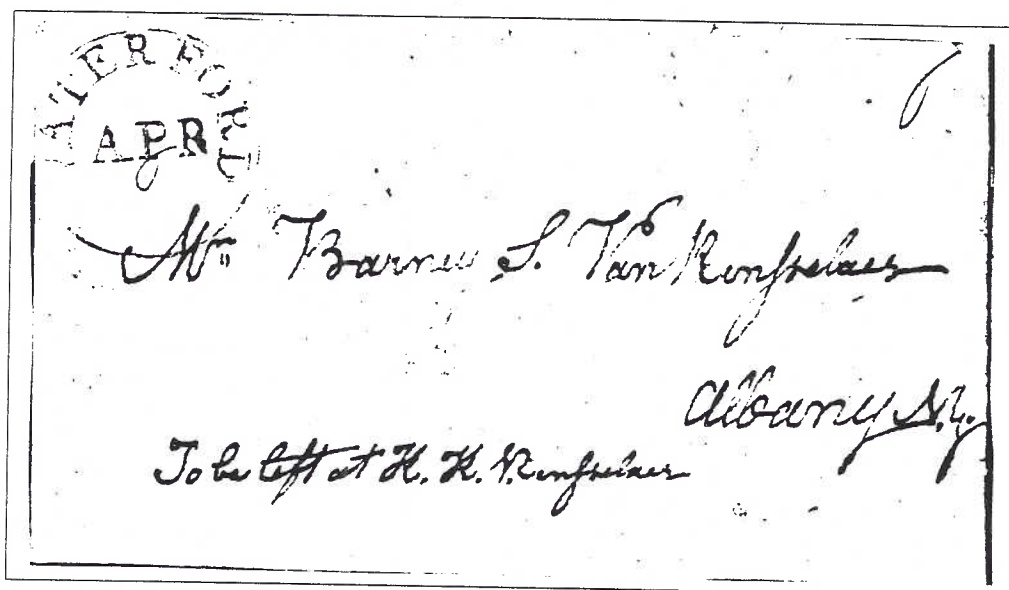 ATERFORD
APR
Mr. Barney S. Van Renſselaer
Albany N.Y.
To be left at H. K. V. Renſselaer